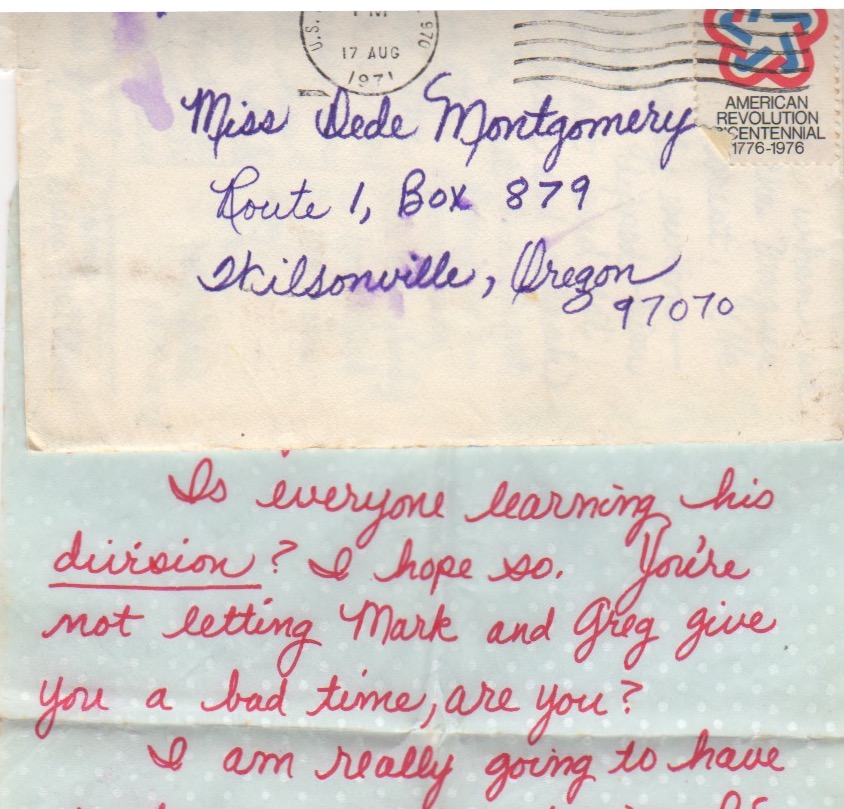 U.S.
PM
970
17 AUG
1971
AMERICAN
REVOLUTION
BICENTENNIAL
1776-1976
Miss Dede Montgomery
Route 1, Box 879
Wilsonville, Oregon
97070
Is everyone learning his
division? I hope so. You're
not letting Mark and Greg give
you a bad time, are you?
I am really going to have